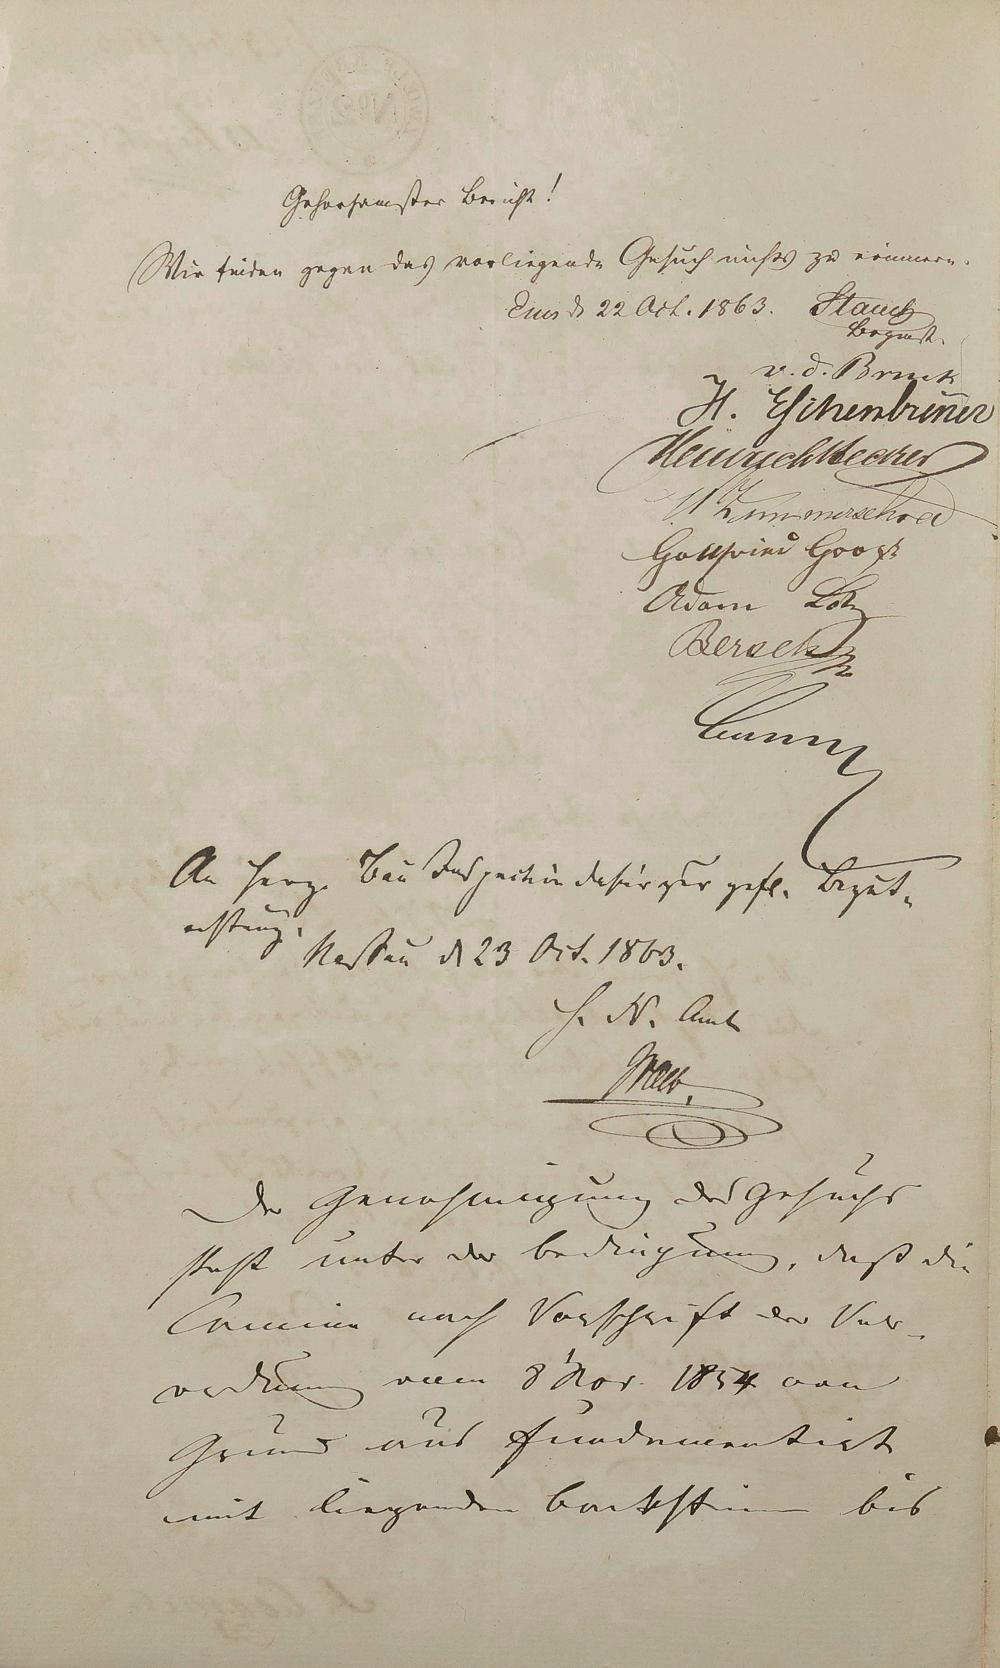 Gehorsamster Bericht!
Wir finden gegen das vorliegende Gesuch nichts zu erinnern.
Ems d 22 Oct. 1863. Stauch
Bgmst.
v. d. Bruck
H. Eschenbrüner
Heinrich Becker
Zimmerschied
Gottfried
Adam Lotz
Bersch
An Herzgl. Bau Inspection dahier zur gefl. Begut-
achtung.
Nassau d 23 Oct. 1863.
H. N. Amt
Der Genehmigung des Gesuchs
steht unter der Bedingung, daß die
Camine nach Vorschrift der Ver-
ordnung vom 8 Nov. 1854 von
Grund aus fundamentirt
mit liegenden Backsteinen bis